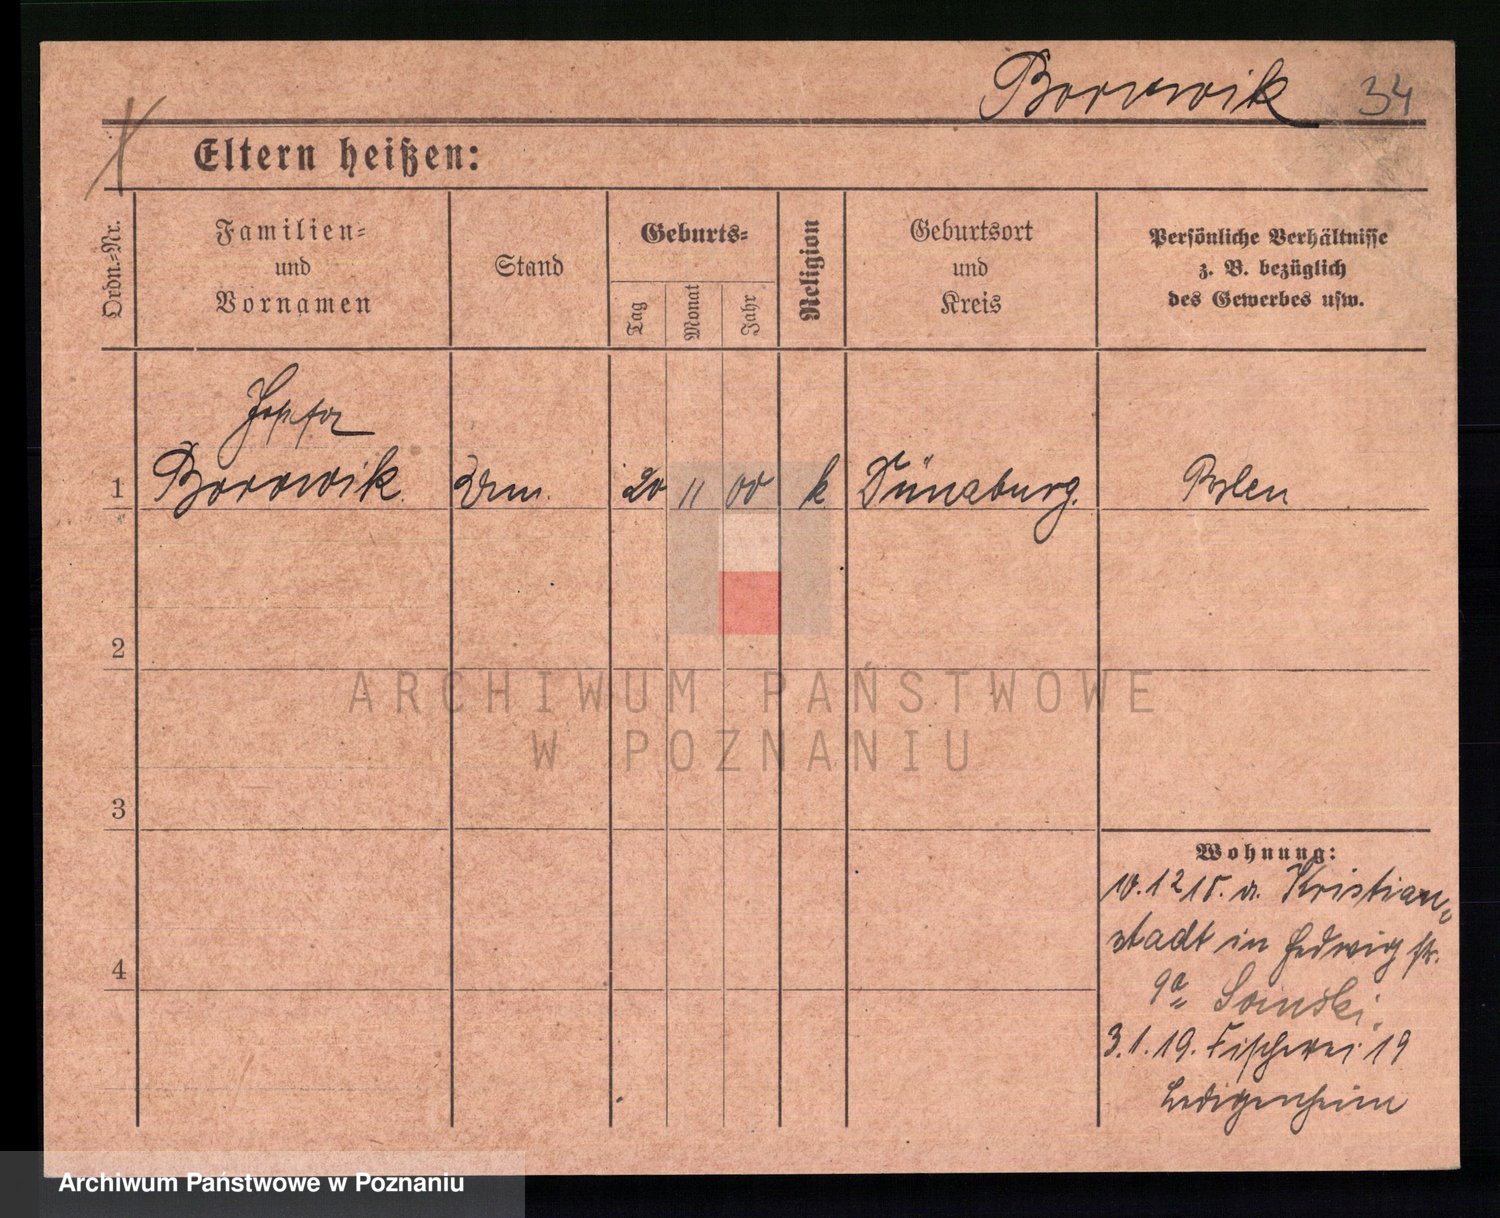 Borowik 34
Eltern heißen:
Ordn.-Nr.
Familien-
und
Vornamen
Stand
Geburts-
Tag
Monat
Jahr
Religion
Geburtsort
und
Kreis
Persönliche Verhältnisse
z. B. bezüglich
des Gewerbes usw.
1 Borowik 20 11 00 k Dünaburg. Polen
2
ARCHIWUM PAŃSTWOWE
W POZNANIU
3
Wohnung:
10.12 18. a. Kristian-
stadt in Hedwig str.
9a
4
3.1.19. Fischerei 19
Ledigenheim
Archiwum Państwowe w Poznaniu